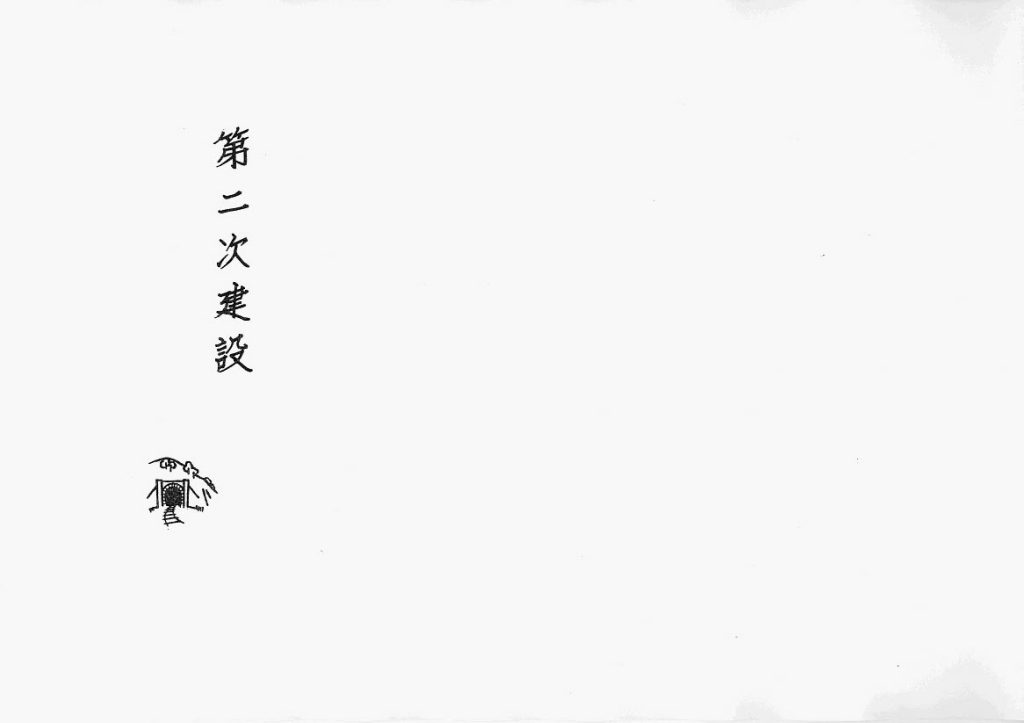 第二次建設